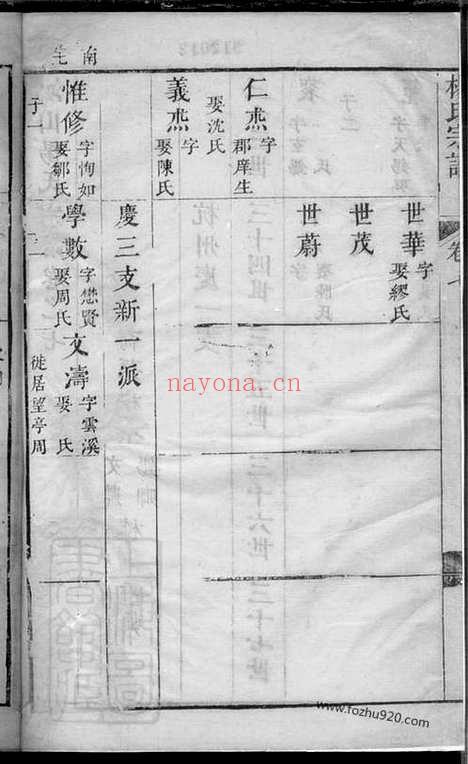 楊氏宗譜
卷七
世華 字 娶繆氏
世茂
世蔚
仁杰 字 郡庠生 娶沈氏
義杰 字 娶陳氏
慶三支新一派
惟修 字恂如 娶鄒氏
子一
學數 字懋賢 娶周氏
子一
文濤 字雲溪 娶 氏
徙居望亭周
南
宅
nayona.cn
www.fozhu920.com